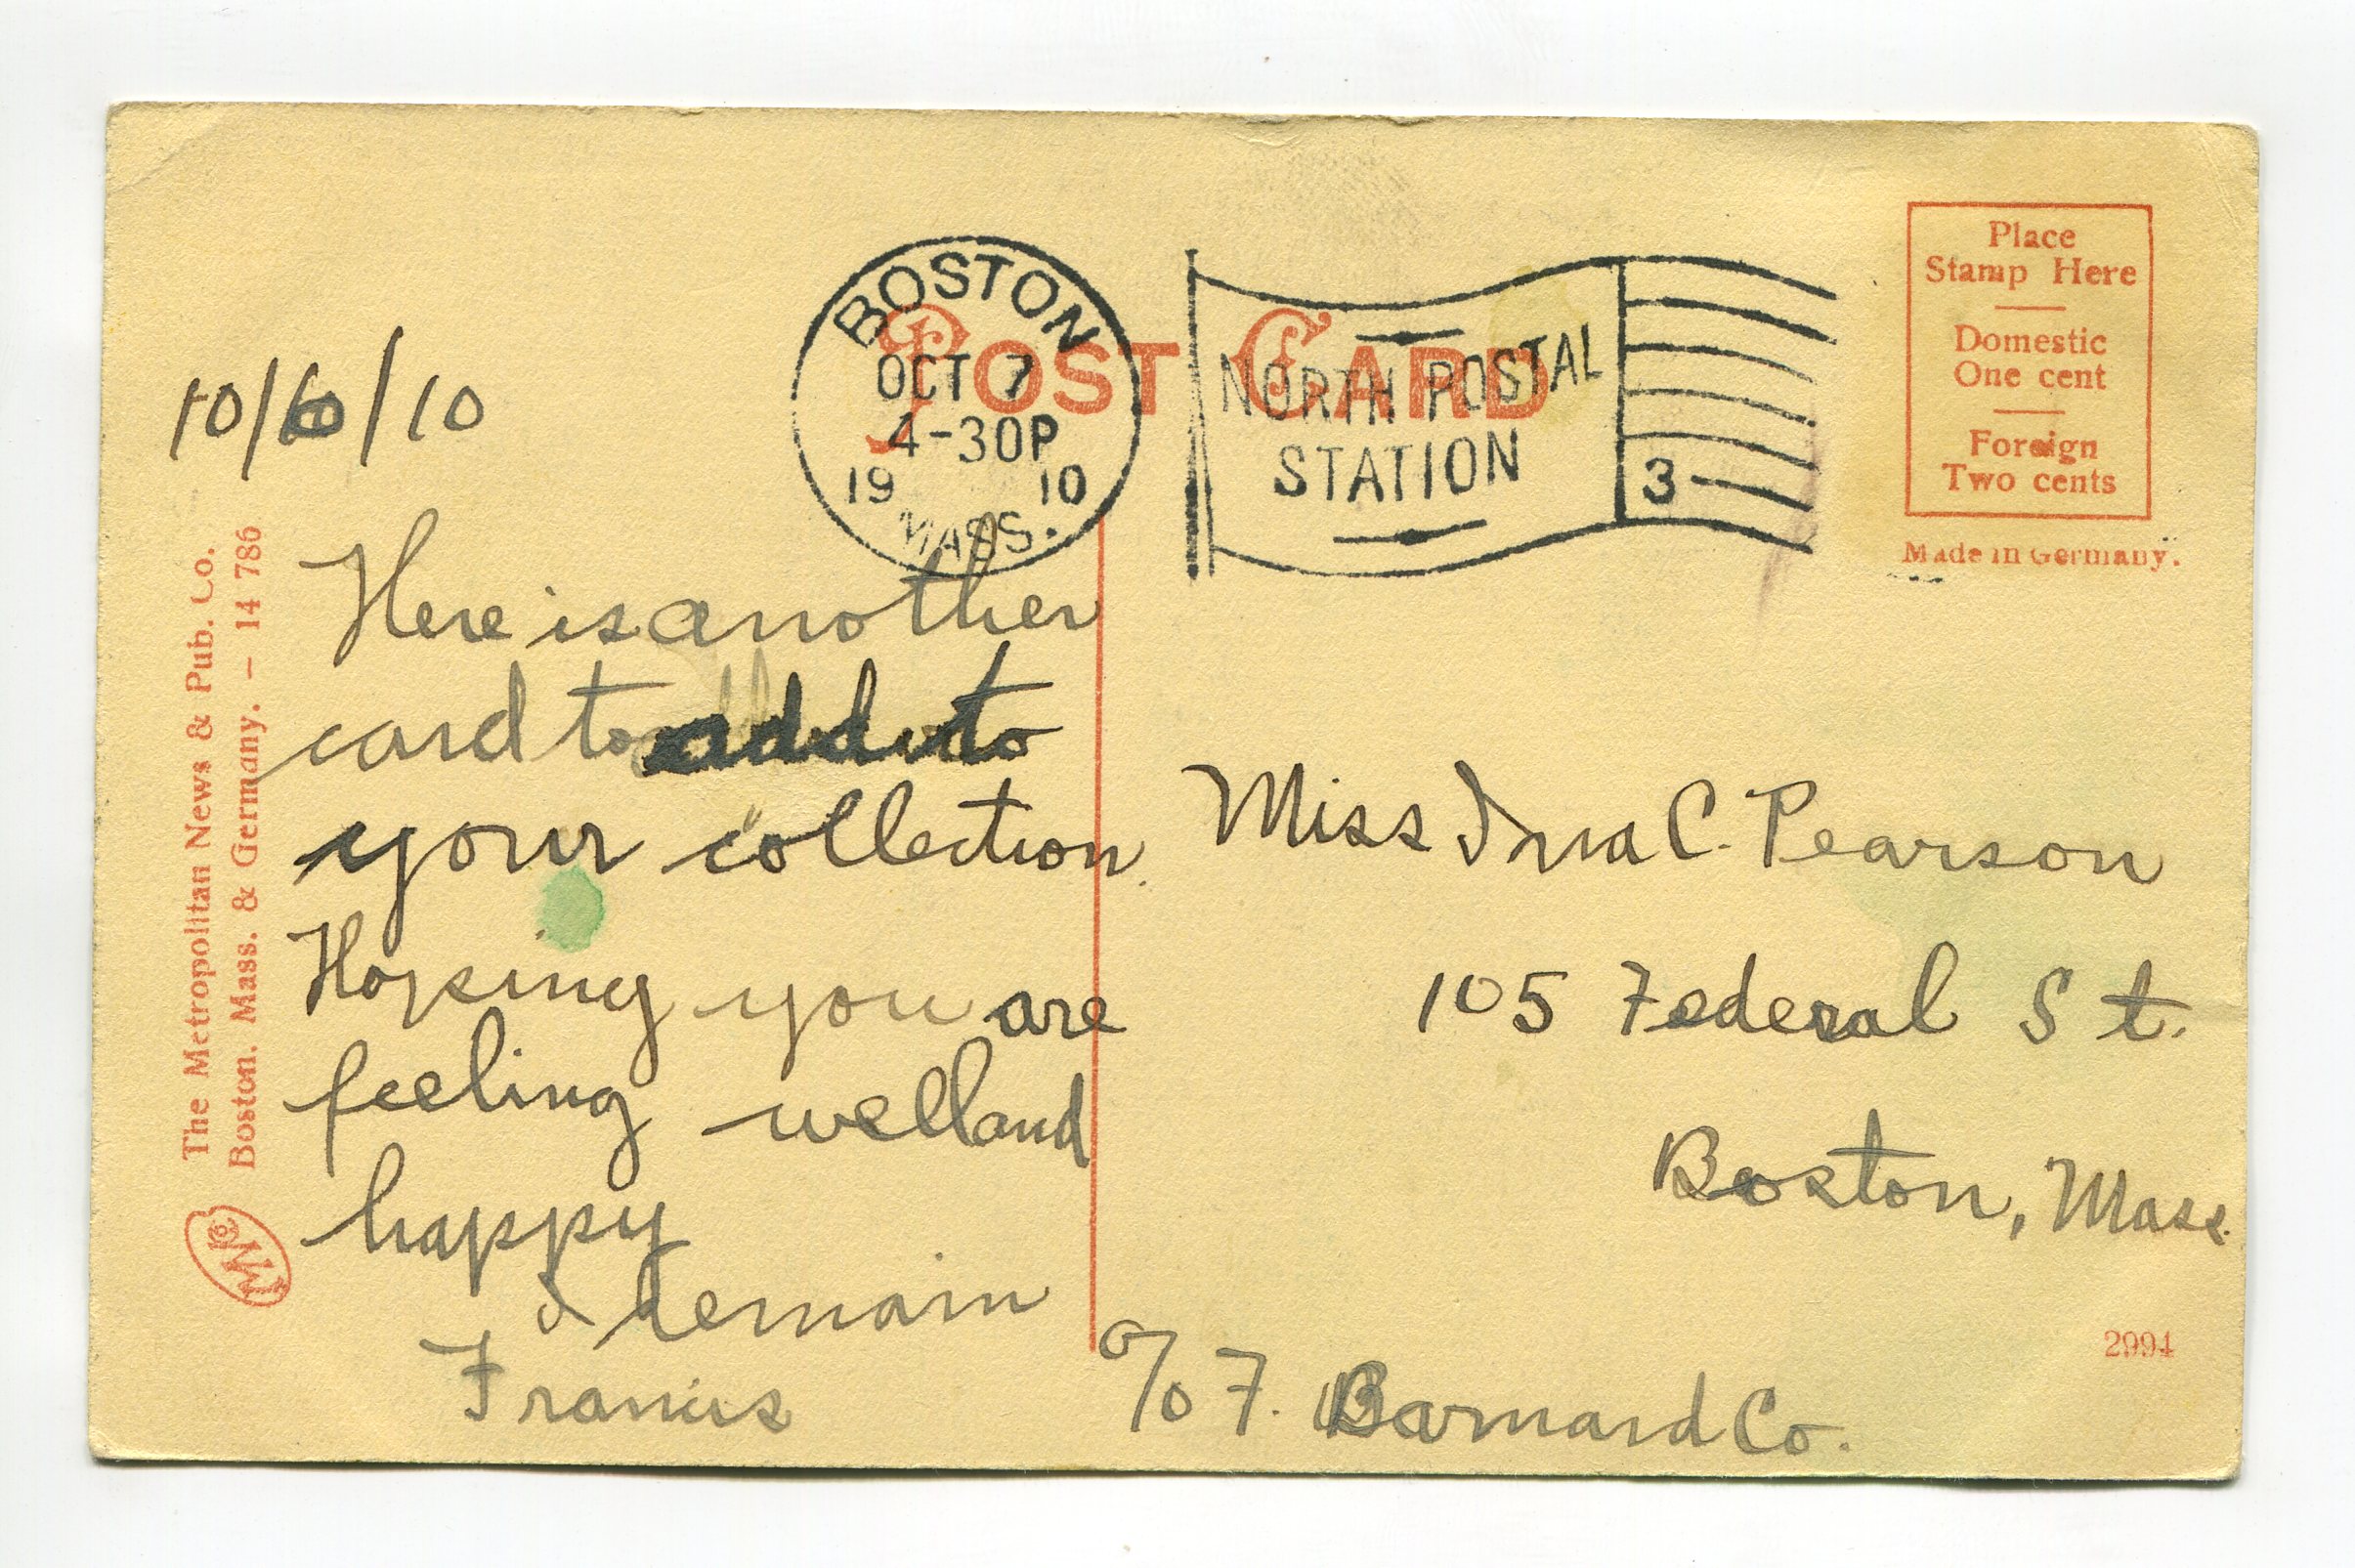 BOSTON
OCT 7
4-30P
19 10
MASS.
NORTH POSTAL
STATION
3
POST CARD
Place
Stamp Here
Domestic
One cent
Foreign
Two cents
Made in Germany.
10/6/10
Here is another
card to add to
your collection.
Hoping you are
feeling well and
happy
I remain
Francis
Miss Ina C. Pearson
105 Federal St.
Boston, Mass.
c/o F. Barnard Co.
The Metropolitan News & Pub. Co.
Boston. Mass. & Germany. – 14 786
2994